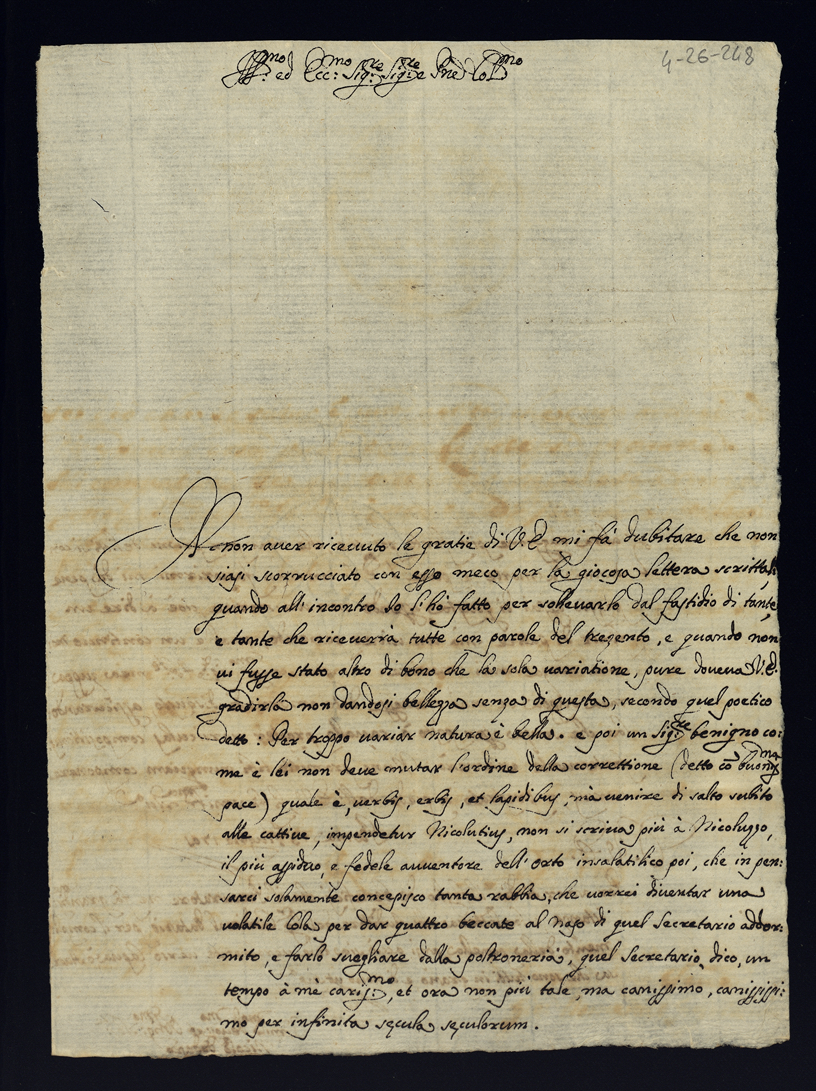 Ill.mo ed Ecc:mo Sig:re Sig:re e Pne Col.mo
4-26-248
Il non aver ricevuto le gratie di V.E. mi fà dubitare che non
siasi scorrucciato con esso meco per la giocosa lettera scritta,
quando all'incontro Io l'hò fatto per sollevarlo dal fastidio di tante,
e tante che riceverrà tutte con parole del trezento, e quando non
vi fusse stato altro di bono che la sola variatione, pure doveva V.E.
gradirla non dandosi bellezza senza di questa, secondo quel poetico
detto: Per troppo variar natura è bella. e poi un Sig:re benigno co:
me è lei non deve mutar l'ordine della correttione (detto cõ buoniss.ma
pace) quale è, verbis, erbis, et lapidibus, mà venire di salto subito
alle cattive, impendetur Nicolutius, non si scriva più à Nicoluzzo,
il più assiduo, e fedele avventore dell'orto insalatilico poi, che in pen:
sarci solamente concepisco tanta rabbia, che vorrei diventar una
volatile Cola per dar quattro beccate al naso di quel Secretario addor:
mito, e farlo svegliare dalla poltroneria, quel Secretario, dico, un
tempo à mè cariss:mo, et ora non più tale, ma canissimo, canississi:
mo per infinita sęcula sęculorum.